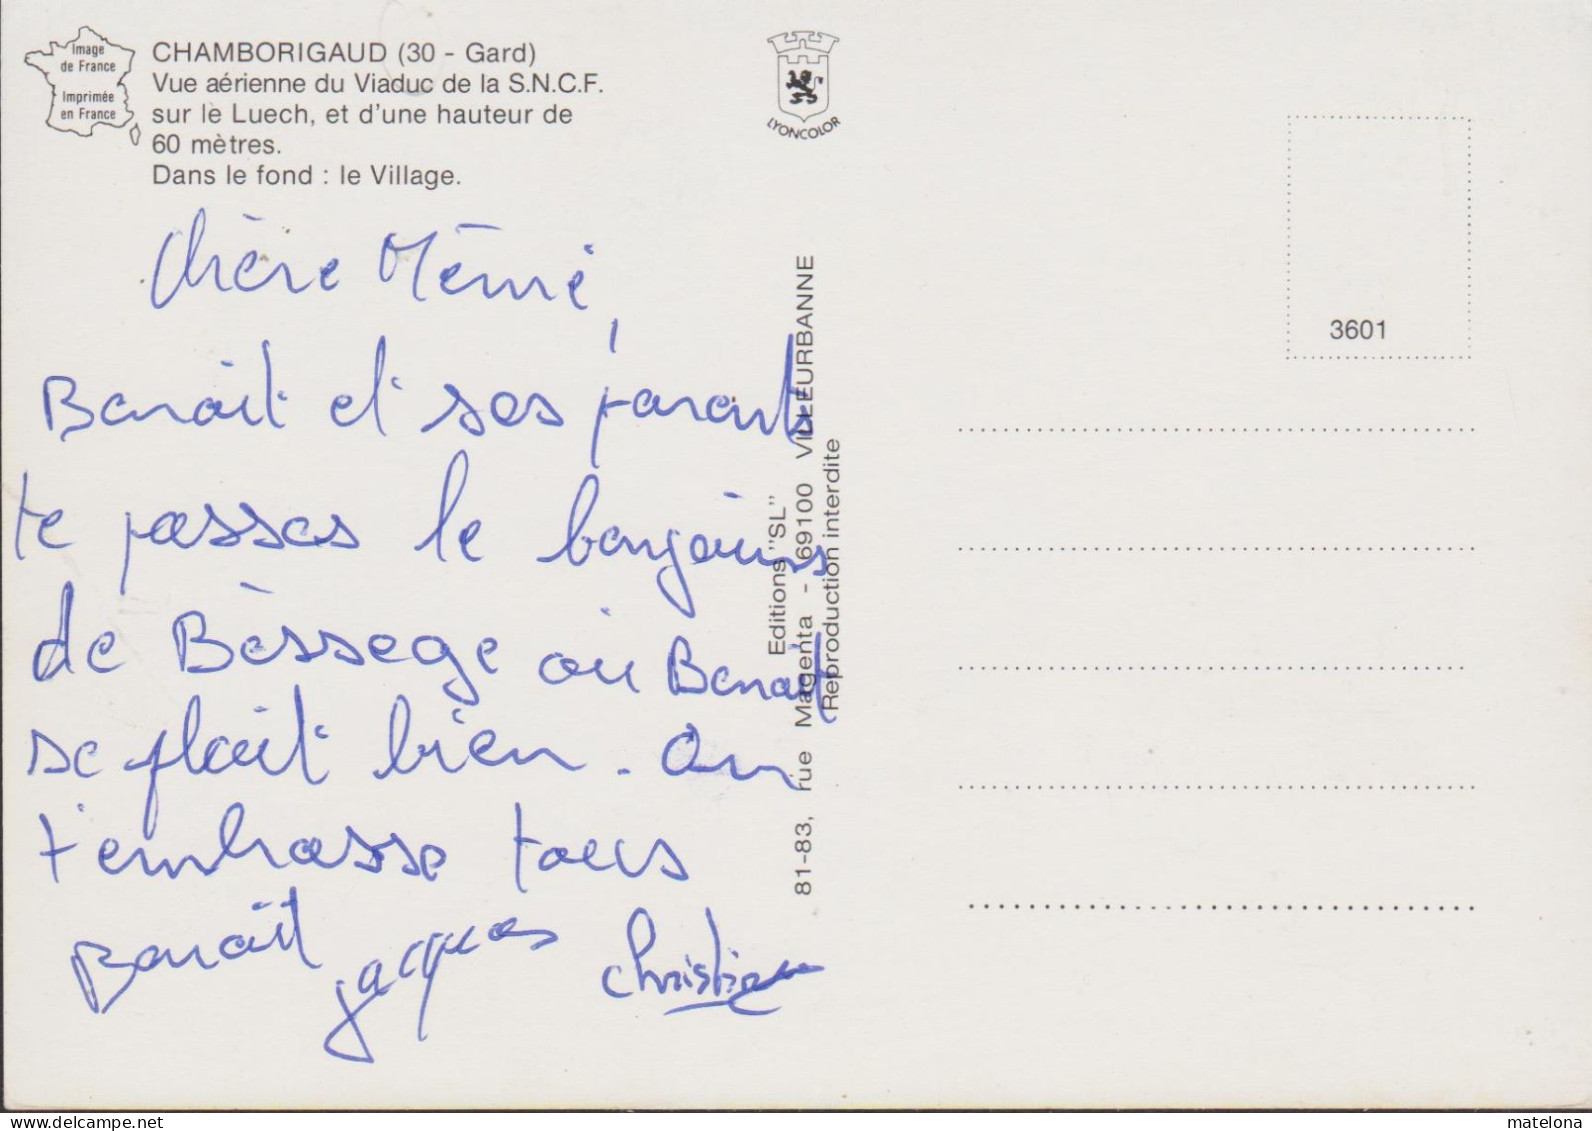 Image
de France
Imprimée
en France
CHAMBORIGAUD (30 - Gard)
Vue aérienne du Viaduc de la S.N.C.F.
sur le Luech, et d'une hauteur de
60 mètres.
Dans le fond : le Village.
LYONCOLOR
3601
Chère Mémé,
Benoit et ses parents
te passes le bonjours
de Bèssege ou Benoit
se plait bien. On
t'embrasse tous
Benoît Jacques Christine
Editions "SL"
81-83, rue Magenta - 69100 VILLEURBANNE
Reproduction interdite
www.delcampe.net
matelona